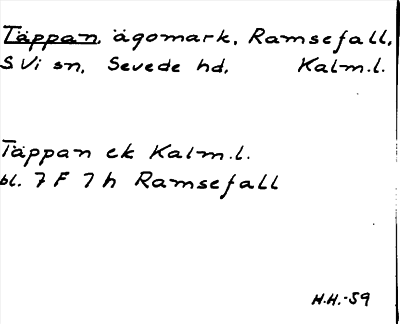 Täppan, ägomark, Ramsefall,
S Vi sn, Sevede hd, Kalm.l.
Täppan ek Kalm.l.
bl. 7 F 7 h Ramsefall
H.H.-59